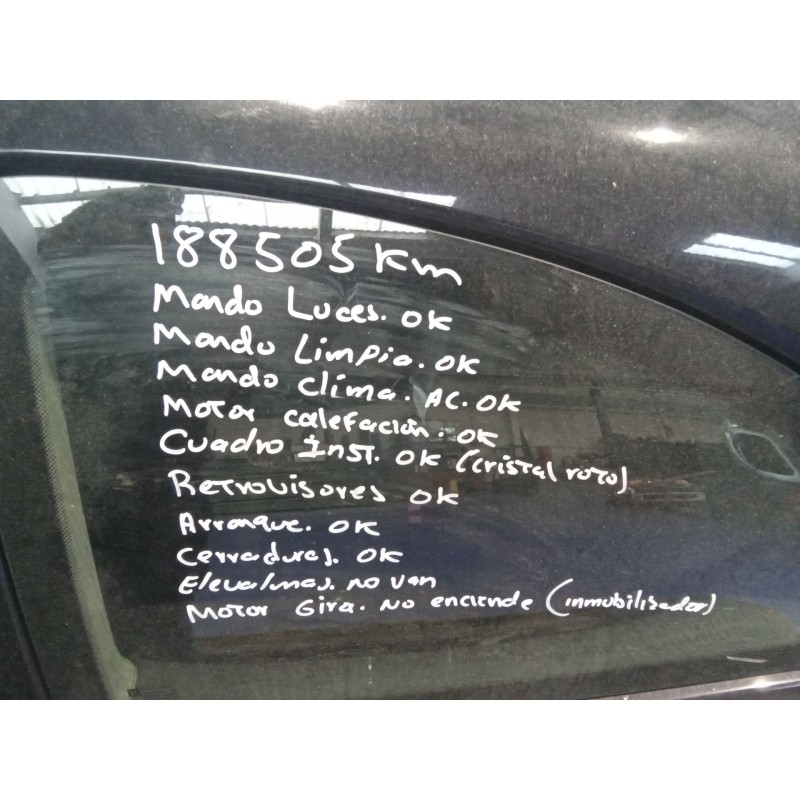 188505 Km
Mando Luces. OK
Mando Limpia. OK
Mando Clima. AC. OK
Motor calefación. OK
Cuadro Inst. OK (cristal roto)
Retrovisores OK
Arranque. OK
Cerraduras. OK
Elevalunas. no van
Motor Gira. No enciende (inmobilisador)